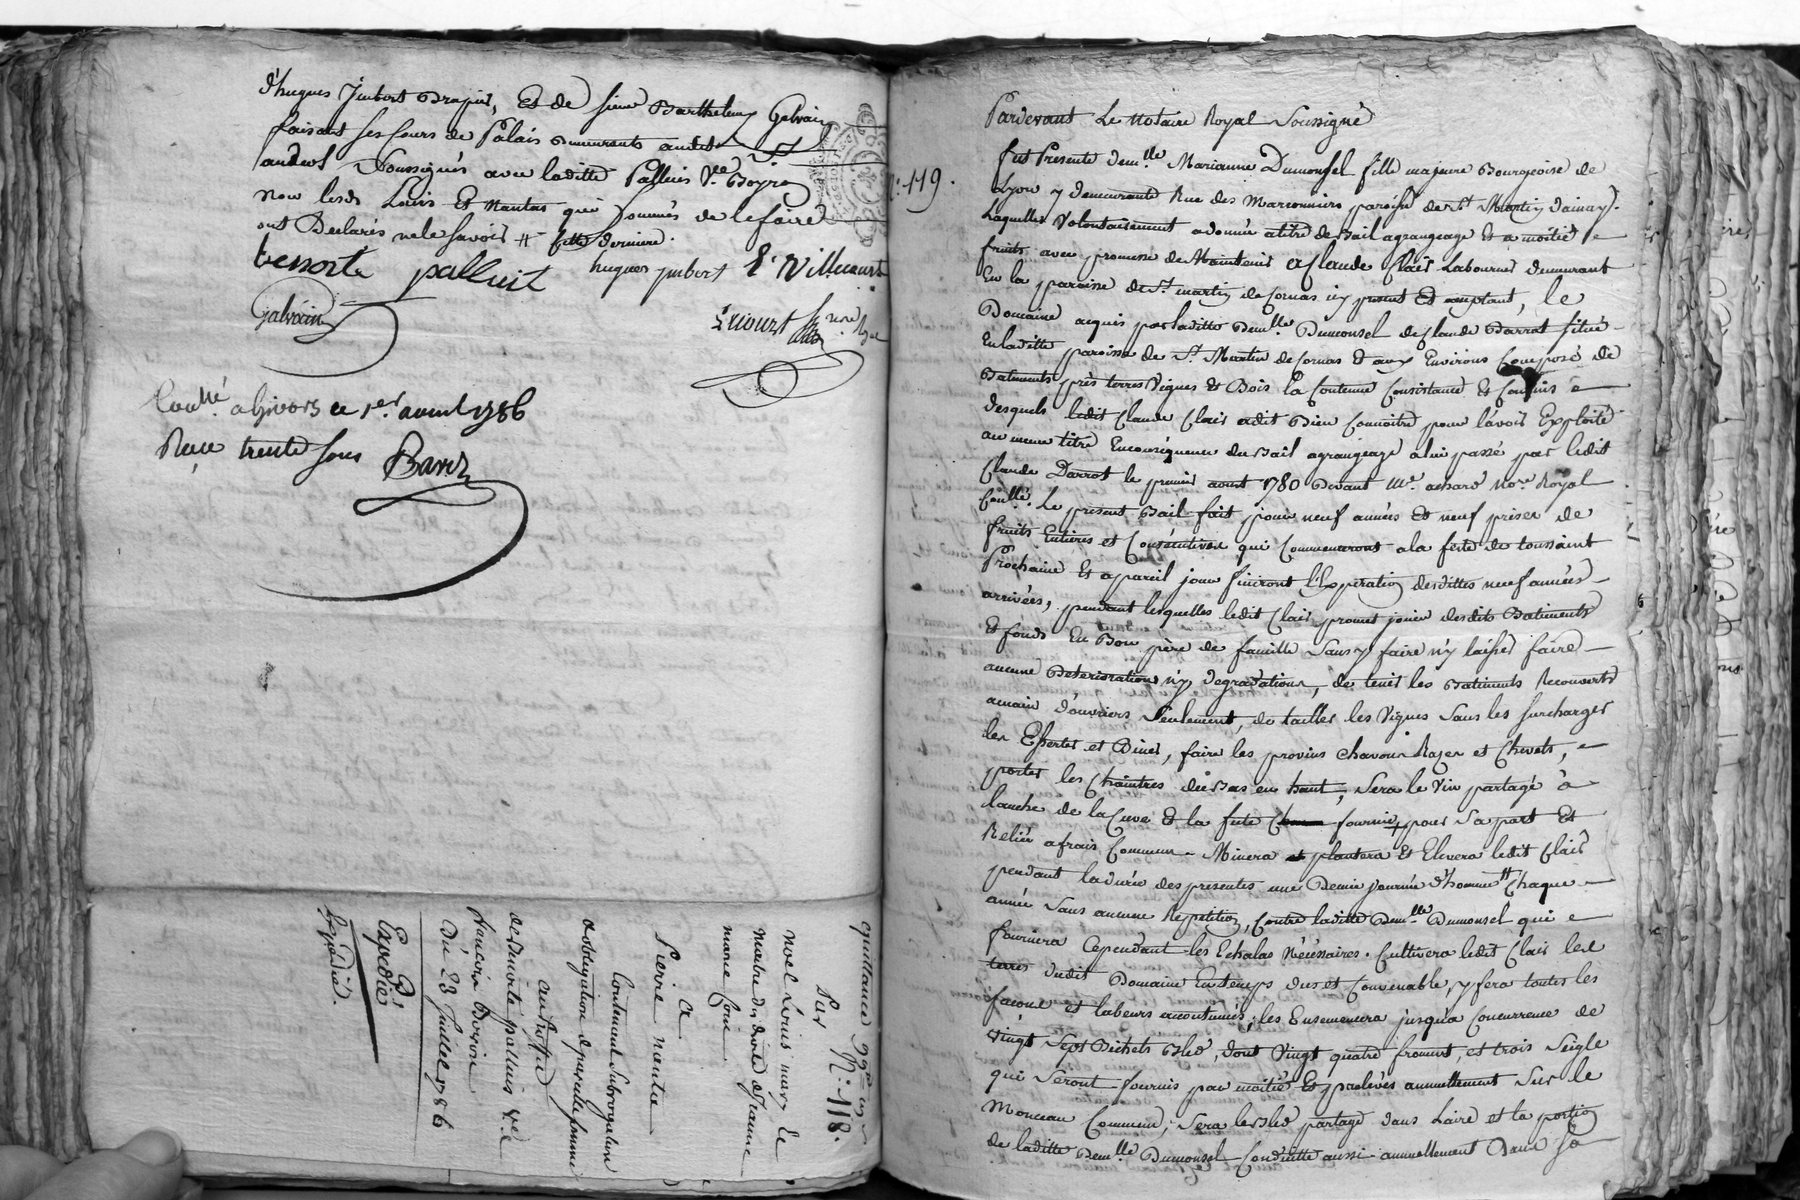 d'hugues Jmbert Drapier, Et de sieur Barthelemy Galvain
faisant ses Cours de Palais demeurants audit St
andeol Soussignés avec laditte Palluis Ve Boyron
non lesds Louis Et Nantas qui sommés de le faire
ont Declarés ne le savoir
tessorte palluit hugues jmbert E. Villecourt
Galvain
Coullé a Givors ce 1er avril 1786
Reçu trente sous
quittance
Par N.° 118.
noel Louis mary de
marie
a
Pierre nantas
Contenant Subrogation
au profit
de Benoite palluis Ve de
francois Boyron
Du 23 Juillet 1786
Expedié
Expedié.
N.° 119.
Pardevant Le notaire Royal Soussigné
fut Presente demlle Marianne Dumonsel fille majeure Bourgeoise de
Lyon y demeurante Rue des Maronniers paroisse de St Martin d'ainay.
Laquelle Volontairement a donné a titre de Bail a grangeage Et a moitié
fruits avec promesse de Maintenir a Claude Clair Laboureur demeurant
En la paroisse de St martin de Cornas icy present Et acceptant, le
Domaine acquis par laditte Demlle Dumonsel de Claude Darrot situé
En laditte paroisse de St Martin de Cornas Et aux Environs Composé de
Batiments près terres Vignes & Bois la Contenue Consistance & Confins
desquels ledit Claude Clair a dit Bien Connoitre pour l'avoir Exploité
au meme titre En conséquence du Bail a grangeage a lui passé par ledit
Claude Darrot le premier aoust 1780 Devant Me nore Royal
Coullé. Le present Bail fait pour neuf années Et neuf prises de
fruits Entières et Consécutives qui Commenceront a la feste de toussaint
Prochaine Et a pareil jour finiront l'Expiration desdittes neuf années
arrivées, pendant lesquelles ledit Clair promet jouir desdits Batiments
Et fonds En Bon père de famille Sans y faire n'y laisser faire
aucune Deterioration n'y degradation, de tenir les Batiments Recouverts
a main d'ouvriers Seulement, de tailler les Vignes Sans les surcharger
les Essertes et Biner, faire les provins chavons Razes et Chevets,
porter les Chaintres du Bas en haut, Sera le Vin partagé à
lanche de la Cuve Et la fute fournie pour Sa part Et
Reliée a frais Commun. Minera et plantera Et Elevera ledit Clair
pendant la durée des presentes une Demie journée d'homme Chaque
année Sans aucune Repetition, Contre laditte Demlle Dumonsel qui
fournira Cependant les Echalas Nécéssaires. Cultivera ledit Clair les
terres dudit Domaine En temps dus et Convenable, y fera toutes les
façons et labeurs accoutumés; les Ensemencera jusqu'a Concurrence de
vingt Sept Bichets Bled, dont Vingt quatre froment, et trois Seigle
qui Seront fournis par moitié Et prelevés annuellement Sur le
Monceau Commun; Sera le Bled partagé dans Laire et la portion
de laditte Demlle Dumonsel Conduitte aussi annuellement Dans Sa